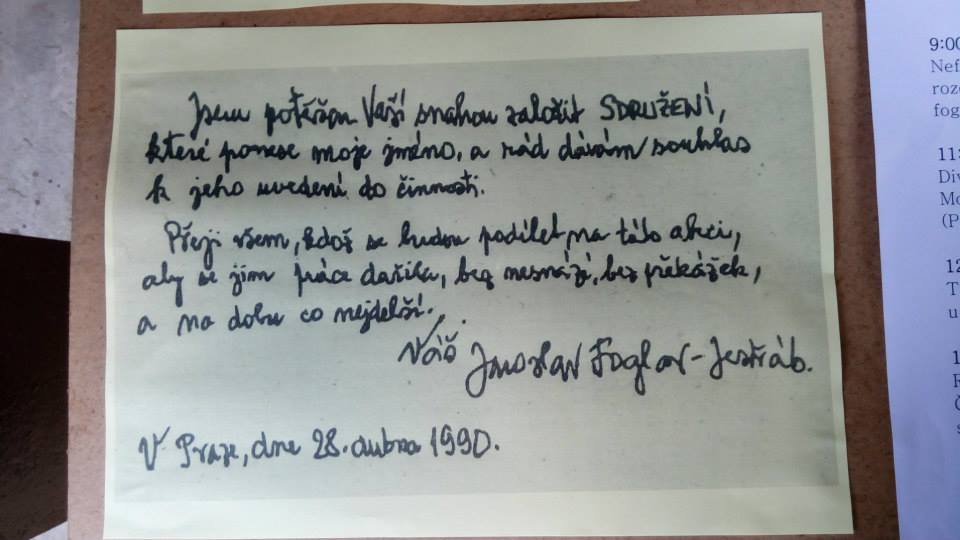 Jsem potěšen Vaší snahou založit SDRUŽENÍ,
které ponese moje jméno, a rád dávám souhlas
k jeho uvedení do činnosti.
Přeji všem, kdož se budou podílet na této akci,
aby se jim práce dařila, bez nesnází, bez překážek,
a na dobu co nejdelší.
Váš Jaroslav Foglar-Jestřáb.
V Praze, dne 28. dubna 1990.
9:00
Nef
roz
fog
11:
Div
Mo
(P
12
T
u
1
R
Č
s